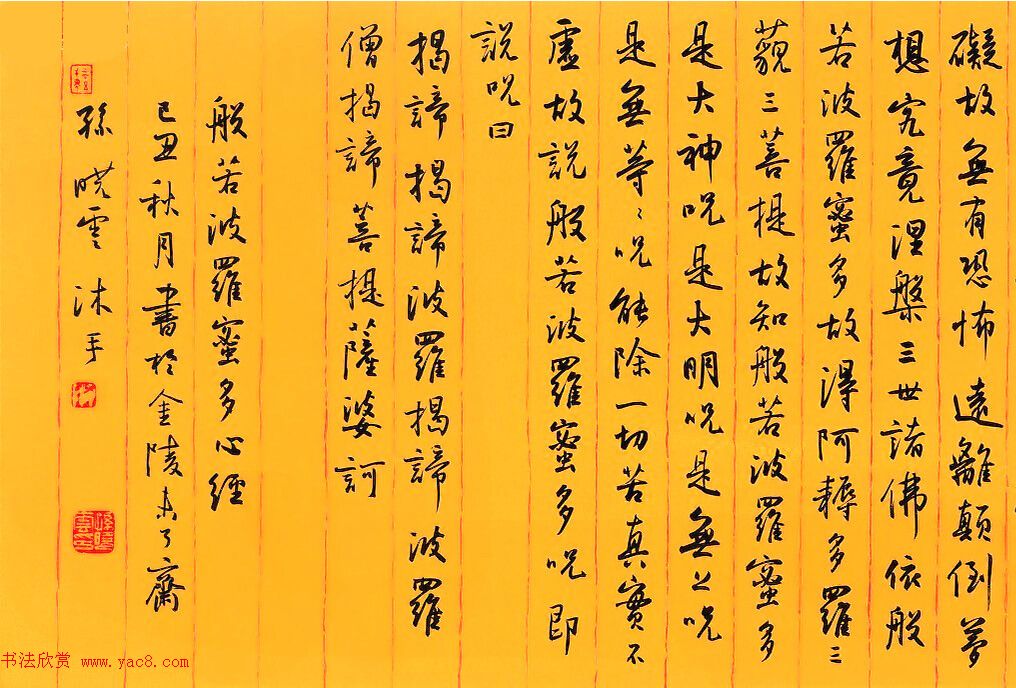 礙故無有恐怖遠離顛倒夢
想究竟涅槃三世諸佛依般
若波羅蜜多故得阿耨多羅三
藐三菩提故知般若波羅蜜多
是大神呪是大明呪是無上呪
是無等〻呪能除一切苦真實不
虛故說般若波羅蜜多呪即
說呪曰
揭諦揭諦波羅揭諦波羅
僧揭諦菩提薩婆訶
般若波羅蜜多心經
己丑秋月書於金陵未了齋
孫曉雲沐手
书法欣赏 www.yac8.com